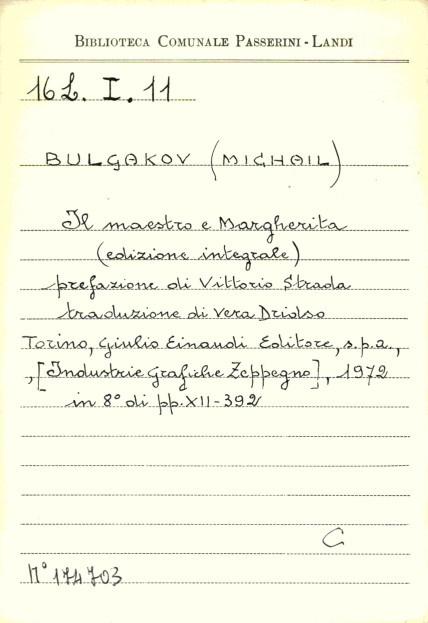 BIBLIOTECA COMUNALE PASSERINI - LANDI
16 L. I. 11
BULGAKOV (MICHAIL)
Il maestro e Margherita
(edizione integrale)
prefazione di Vittorio Strada
traduzione di Vera Dridso
Torino, Giulio Einaudi Editore, s.p.a.,
,[Industrie Grafiche Zeppegno], 1972
in 8° di pp. XII-392
C
N° 174703